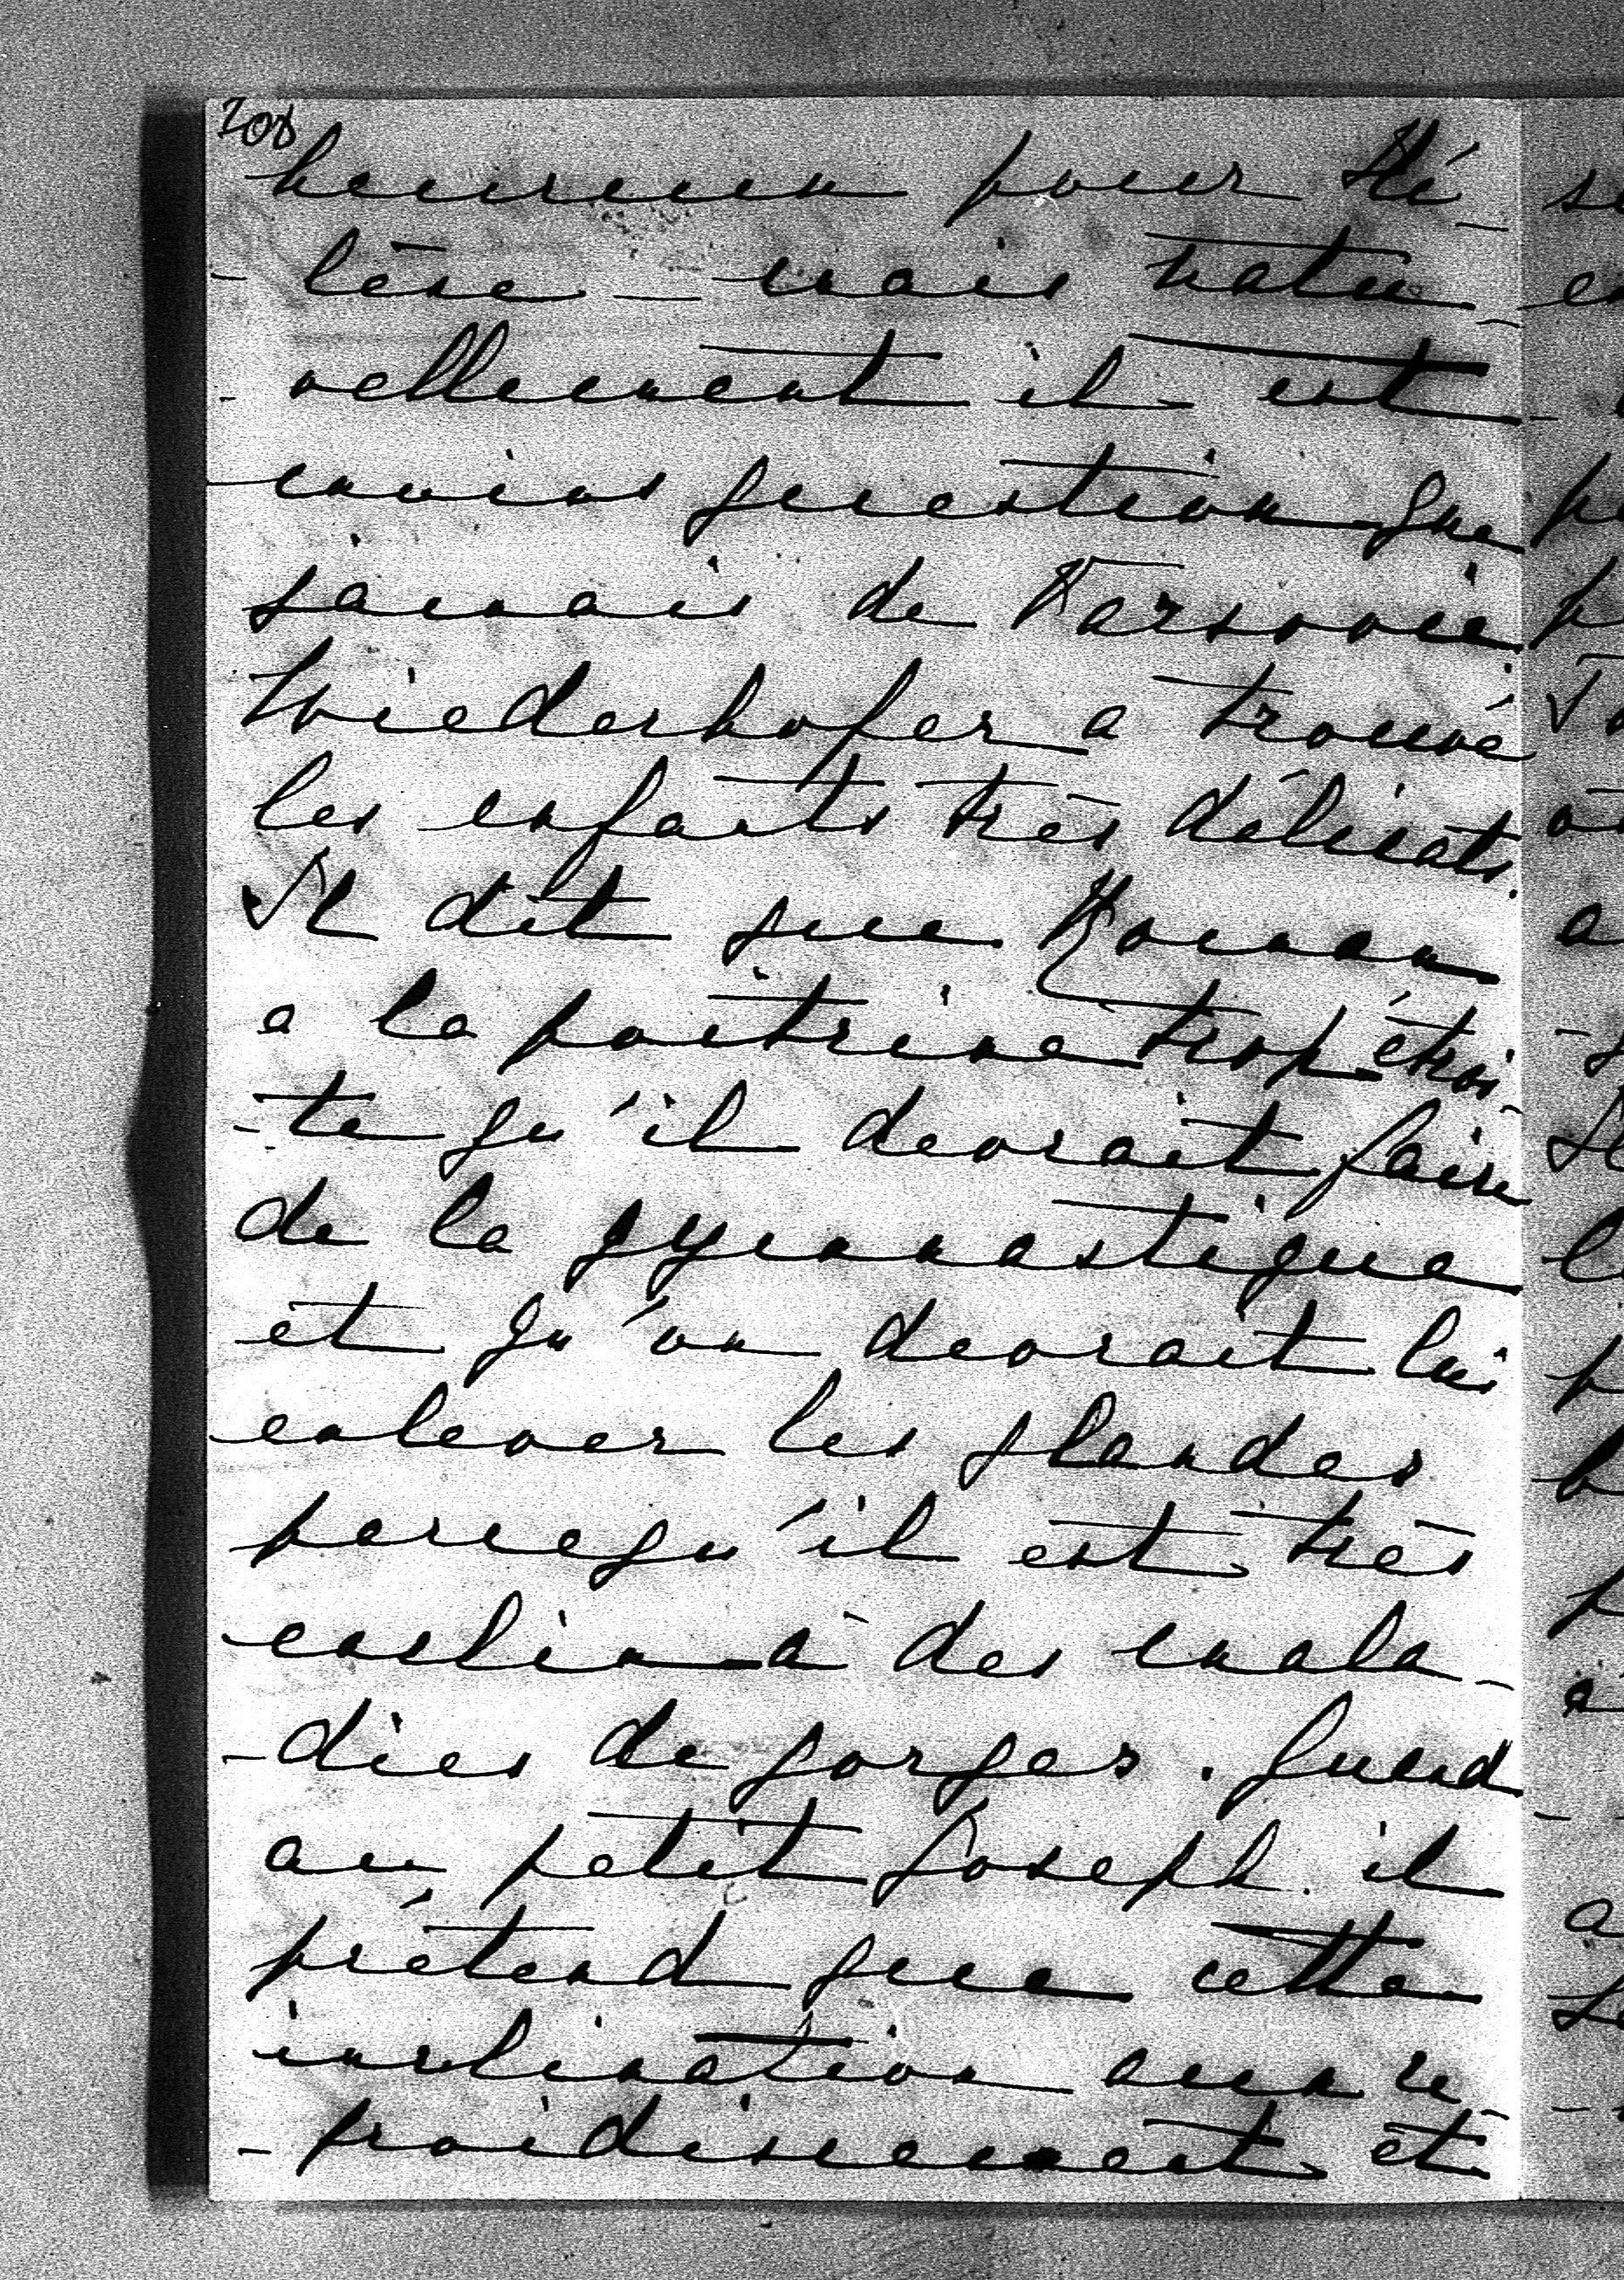 208
heureux pour Hé
- lène _ mais natu -
- rellement il est
moins question que
jamais de Varsovie
Wiederhofer a trouvé
les enfants très délicats.
Il dit que Roman
a la poitrine trop étroi
- te qu'il devrait faire
de la gymnastique
et qu'on devrait lui
enlever les glandes
parcequ'il est très
enclin à des mala -
- dies de gorges. Quand
au petit Joseph il
prétend que cette
inclination aux re -
- froidissement et